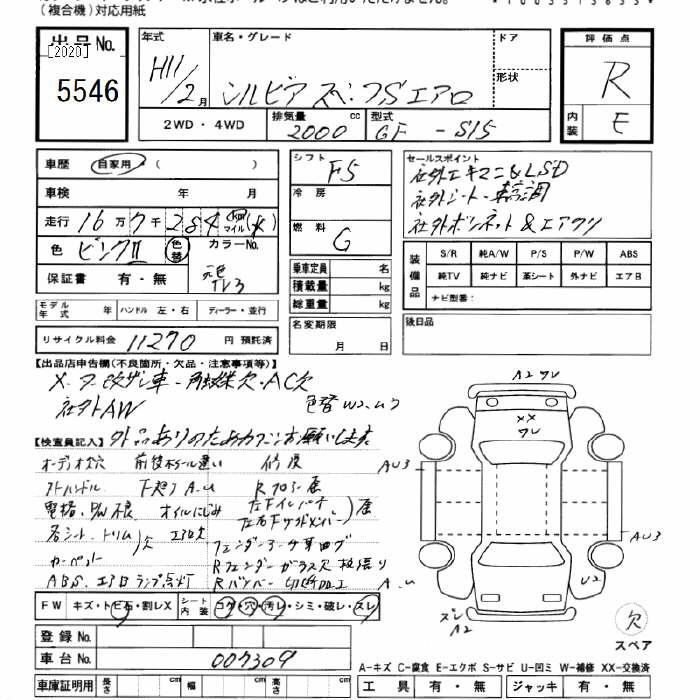 (複合機)対応用紙
出品No. 年式 車名・グレード ドア 評価点
[2020]
5546
H11/2月 シルビア スペ.フSエアロ 形状 R
2WD・4WD 排気量 2000 cc 型式 GF - S15 内装 E
車歴 自家用 ( ) シフト F5 セールスポイント
社外エキマニ&LSD
車検 年 月 冷房 社外シート・車高調
走行 16万7千284 km マイル 社外ボンネット&エアクリ
色 ピンクII 色替 カラーNo. 燃料 G
元色 TV3
装備品 S/R 純A/W P/S P/W ABS
純TV 純ナビ 革シート 外ナビ エアB
ナビ型番:
保証書 有・無 乗車定員 名
積載量 kg
総重量 kg
モデル年式 ハンドル 左・右 ディーラー・並行 名変期限 月 日 後日品
リサイクル料金 11270 円 預託済
【出品店申告欄(不良箇所・欠品・注意事項等)】
AC欠
社外AW 色替
A2 ワレ
XX
ワレ
【検査員記入】 外品ありのため お願いします
オーディオ欠 前後ホイール違い 修復
AU3
下廻りA.U
電格.P/W不良 オイルにじみ
各シート.トリム 欠 エアロ欠
AU3
カーペット Rフェンダー
ABS.エアBランプ点灯 Rバンパー 切断加工
A.U
U2
FW キズ・トビ石・割レX シート内装 コゲ・穴・汚レ・シミ・破レ・スレ
ズレ
A2
欠
スペア
登録No.
車台No. 007309
A-キズ C-腐食 E-エクボ S-サビ U-凹ミ W-補修 XX-交換済
車庫証明用 長さ cm 幅 cm 高さ cm 工具 有・無 ジャッキ 有・無